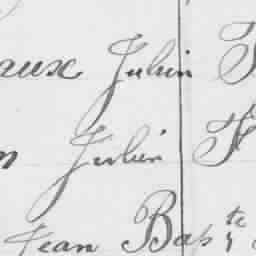 aux Julien
n Julien
Jean Bapte